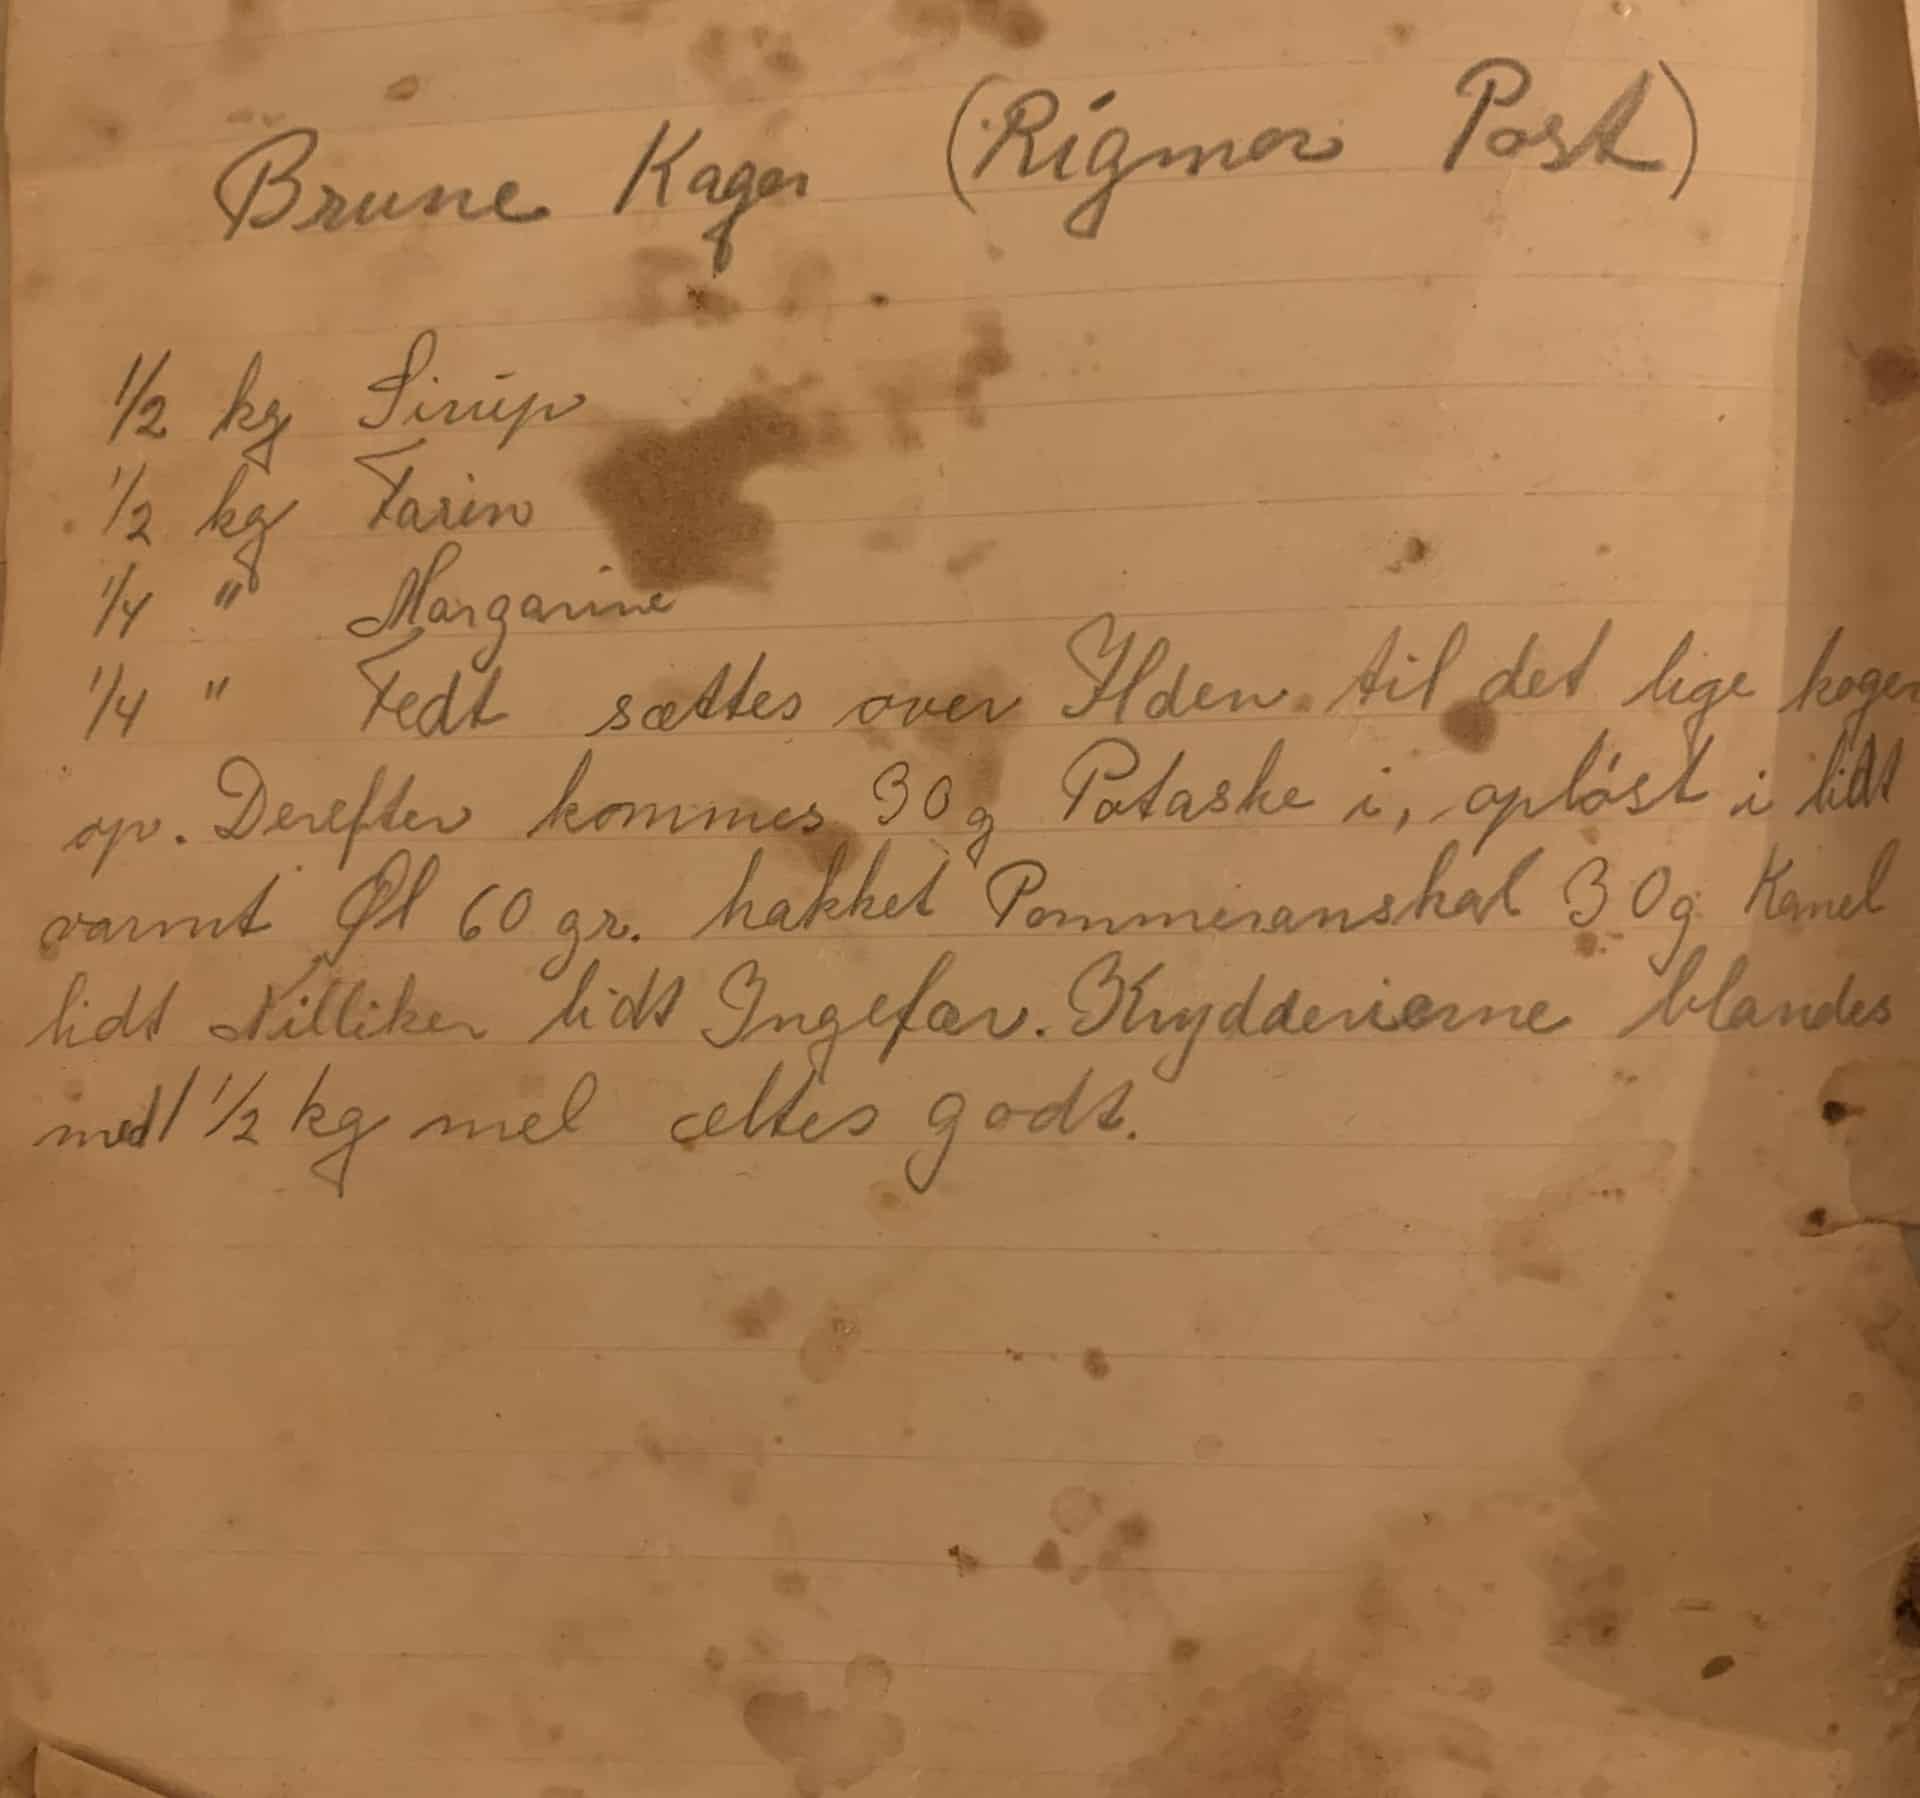 Brune Kager (Rigmor Post)
1/2 kg Sirup
1/2 kg Farin
1/4 " Margarine
1/4 " Fedt sættes over Ilden til det lige koger
op. Derefter kommes 30 g Potaske i, opløst i lidt
varmt Øl 60 gr. hakket Pommeranskal 30 g Kanel
lidt Nilliker lidt Ingefær. Krydderierne blandes
med 1 1/2 kg mel æltes godt.